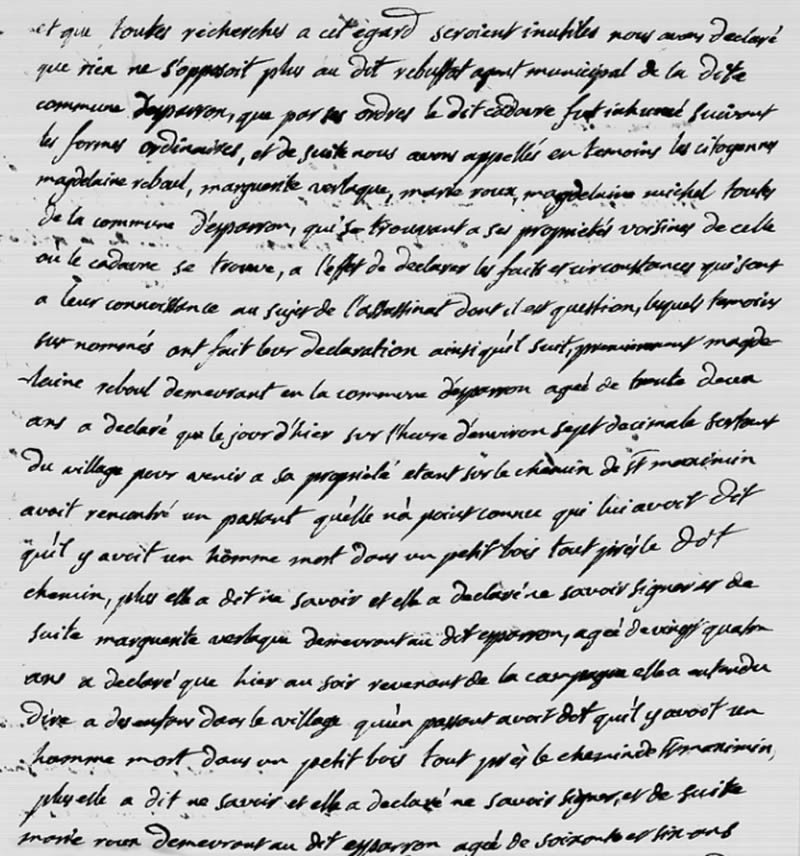 et que toutes recherches a cet egard seroient inutiles nous avons declaré
que rien ne s'opposoit plus au dit rebuffat agent municipal de la dite
commune desparron, que par ses ordres le dit cadavre fut inhumé suivant
les formes ordinaires, et de suite nous avons appellés en temoins les citoyennes
magdelaine reboul, marguerite verlaque, marie roux, magdelaine michel toutes
de la commune d'esparron, qui se trouvant a ses proprietés voisines de celle
où le cadavre se trouve, a l'effet de declarer les faits et circonstances qui sont
a leur connoissance au sujet de l'assassinat dont il est question, lesquels temoins
sur nommés ont fait leur declaration ainsi qu'il suit, premierement magde-
-laine reboul demeurant en la commune d'esparron agée de trente deux
ans a declaré que le jour d'hier sur l'heure d'environ sept decimale sortant
du village pour venir a sa proprieté etant sur le chemin de St maximin
avoit rencontré un passant qu'elle n'a point connu qui lui avoit dit
qu'il y avoit un homme mort dans un petit bois tout près le dit
chemin, plus elle a dit ne savoir et elle a declaré ne savoir signer et de
suite marguerite verlaque demeurant au dit esparron, agée de vingt quatre
ans a declaré que hier au soir revenant de la campagne elle a entendu
dire a des enfans dans le village qu'un passant avoit dit qu'il y avoit un
homme mort dans un petit bois tout près le chemin de St maximin,
plus elle a dit ne savoir et elle a declaré ne savoir signer, et de suite
marie roux demeurant au dit esparron agée de soixante et six ans